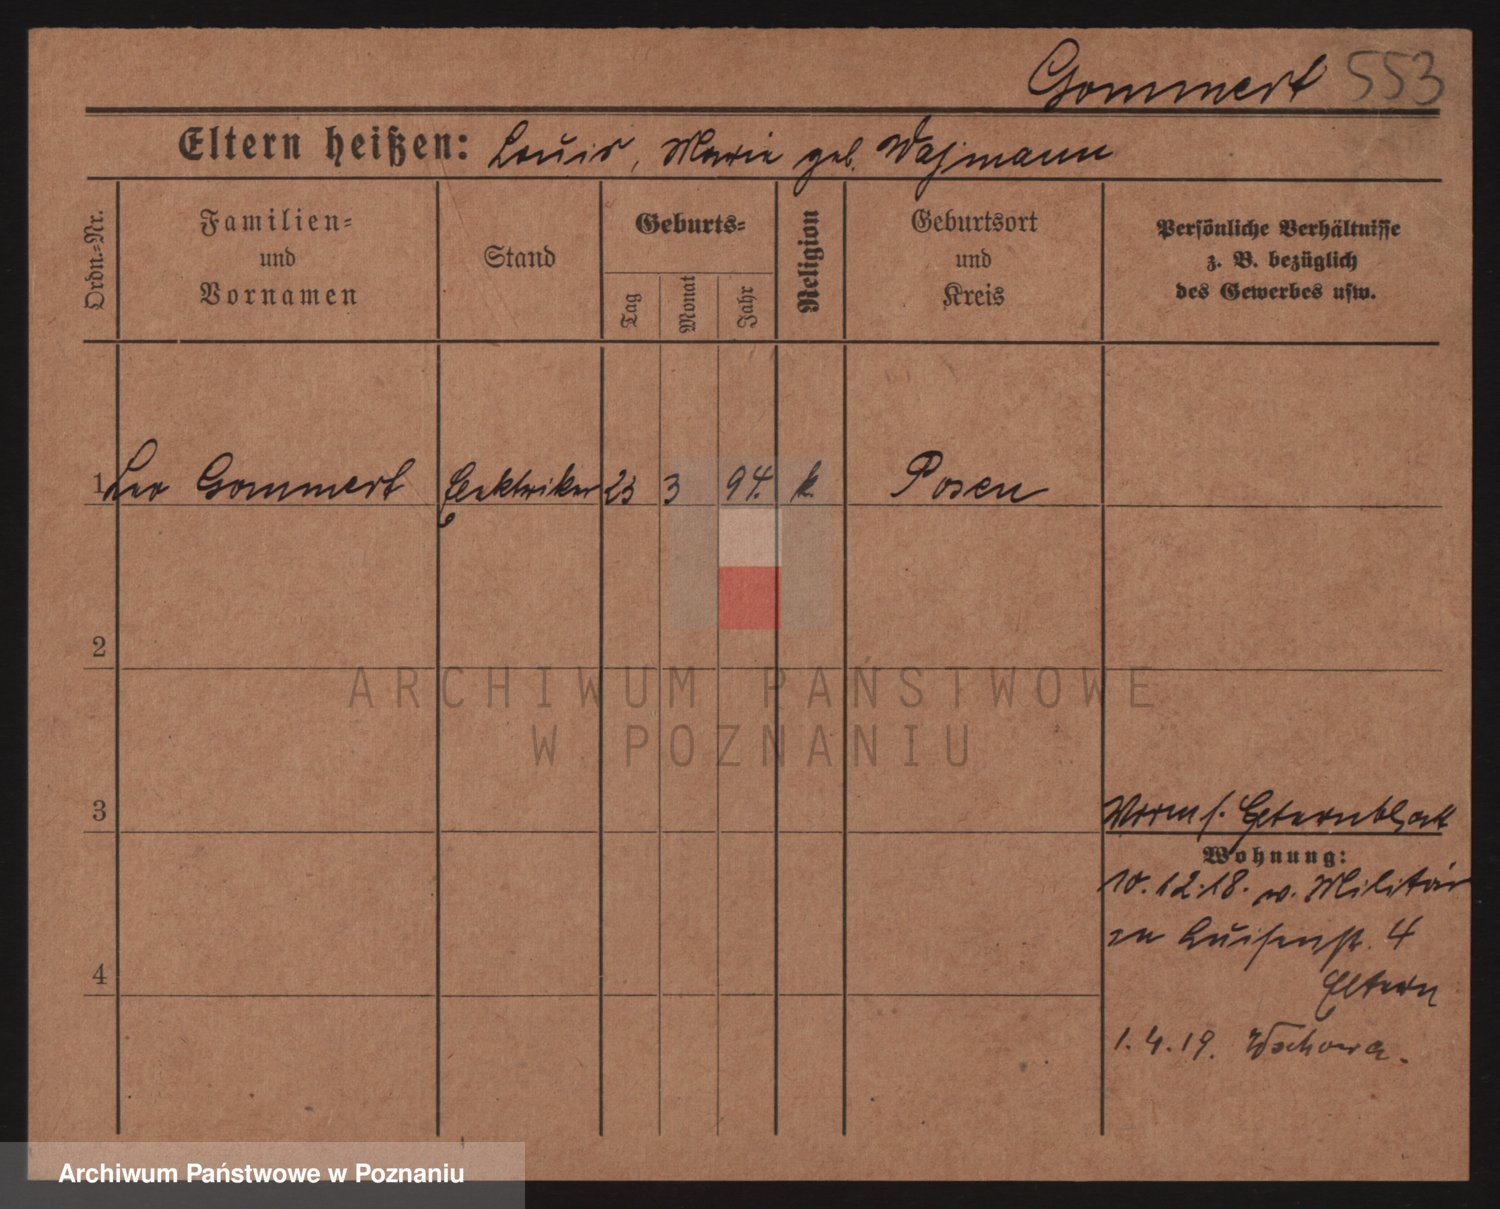 Gommert 553
Eltern heißen: Louis, Marie geb. Wasmann
Ordn.=Nr.
Familien=
und
Vornamen
Stand
Geburts=
Tag
Monat
Jahr
Religion
Geburtsort
und
Kreis
Persönliche Verhältnisse
z. B. bezüglich
des Gewerbes usw.
1 Leo Gommert Elektriker 23 3 94. k. Posen
2
ARCHIWUM PAŃSTWOWE
W POZNANIU
3
Vorm s. Elternblatt
Wohnung:
10.12.18. v. Militär
zu Luisenstr. 4
4
Eltern
1.4.19. Wschowa.
Archiwum Państwowe w Poznaniu